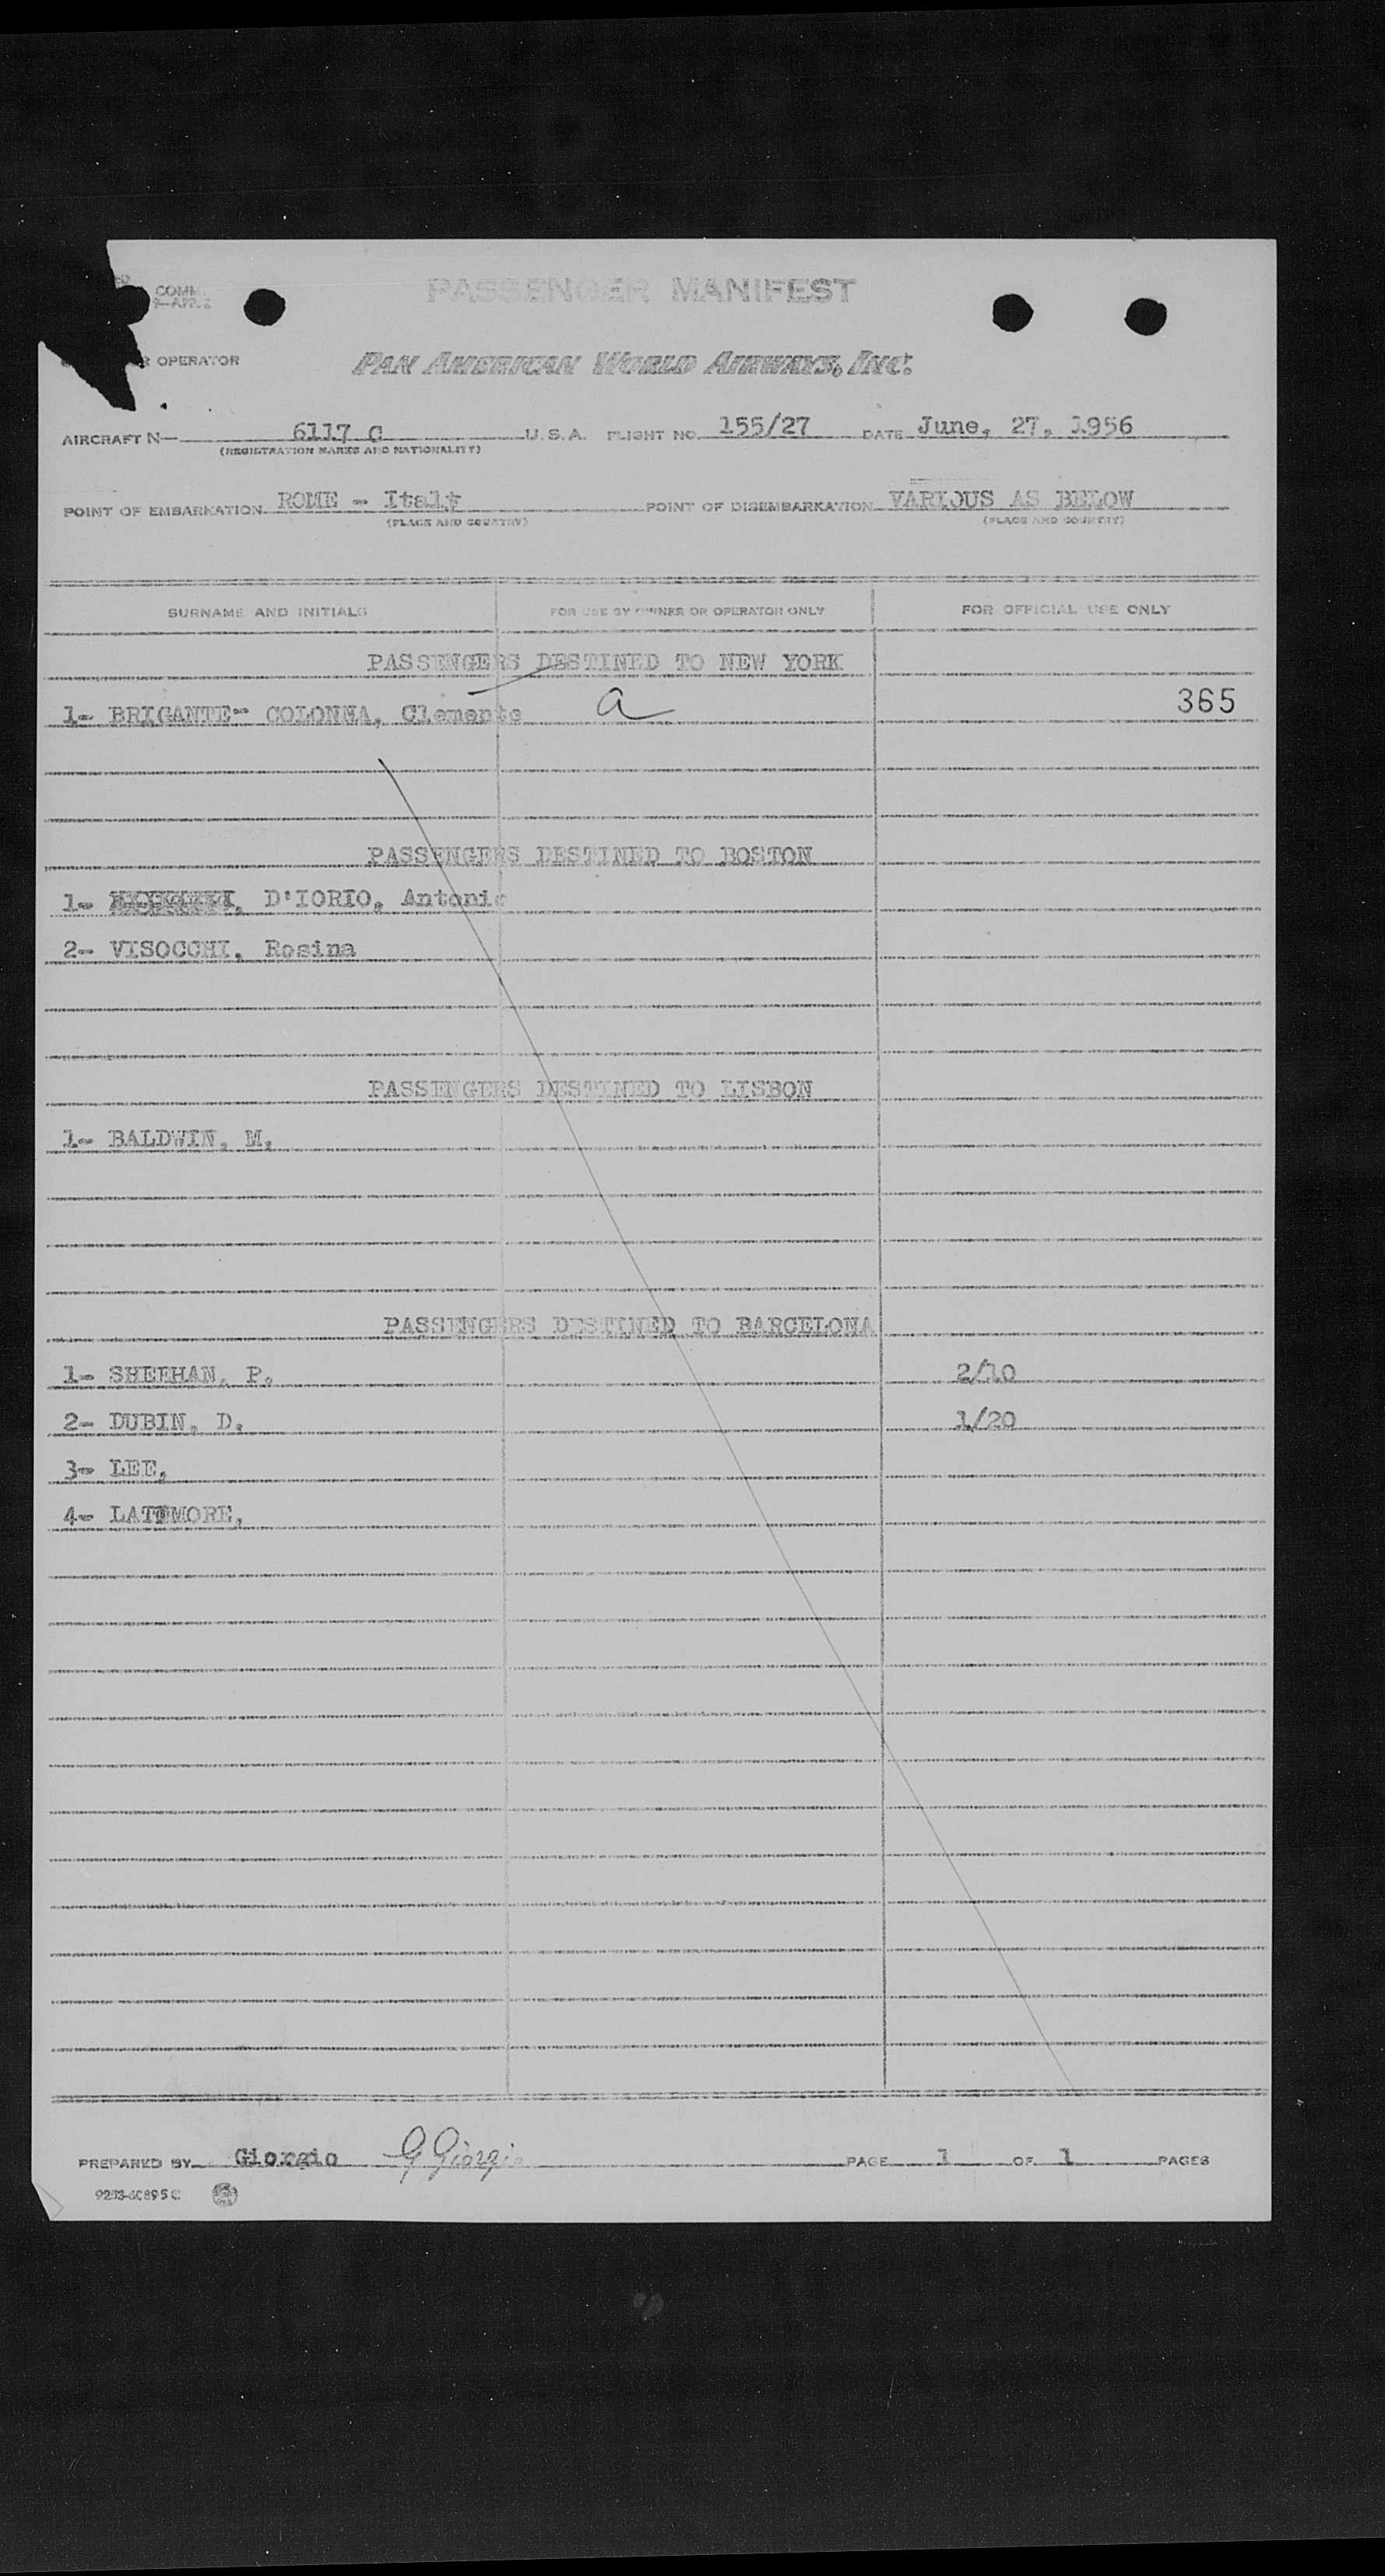 COMM.
PASSENGER MANIFEST
OPERATOR
PAN AMERICAN WORLD AIRWAYS, INC.
AIRCRAFT N— 6117 C U.S.A. FLIGHT NO. 155/27 DATE June, 27, 1956
(REGISTRATION MARKS AND NATIONALITY)
POINT OF EMBARKATION ROME - Italt POINT OF DISEMBARKATION VARIOUS AS BELOW
(PLACE AND COUNTRY) (PLACE AND COUNTRY)
SURNAME AND INITIALS FOR USE BY OWNER OR OPERATOR ONLY FOR OFFICIAL USE ONLY
PASSENGERS DESTINED TO NEW YORK
1- BRIGANTE- COLONNA, Clemente a 365
PASSENGERS DESTINED TO BOSTON
1- D'IORIO, Antonio
2- VISOCCHI, Rosina
PASSENGERS DESTINED TO LISBON
1- BALDWIN, M.
PASSENGERS DESTINED TO BARCELONA
1- SHEEHAN, P. 2/10
2- DUBIN, D. 1/20
3- LEE,
4- LATTMORE,
PREPARED BY Giorgio G Giorgio PAGE 1 OF 1 PAGES